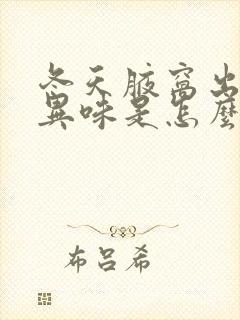 冬天腋窝出
异味是怎麼
布吕希